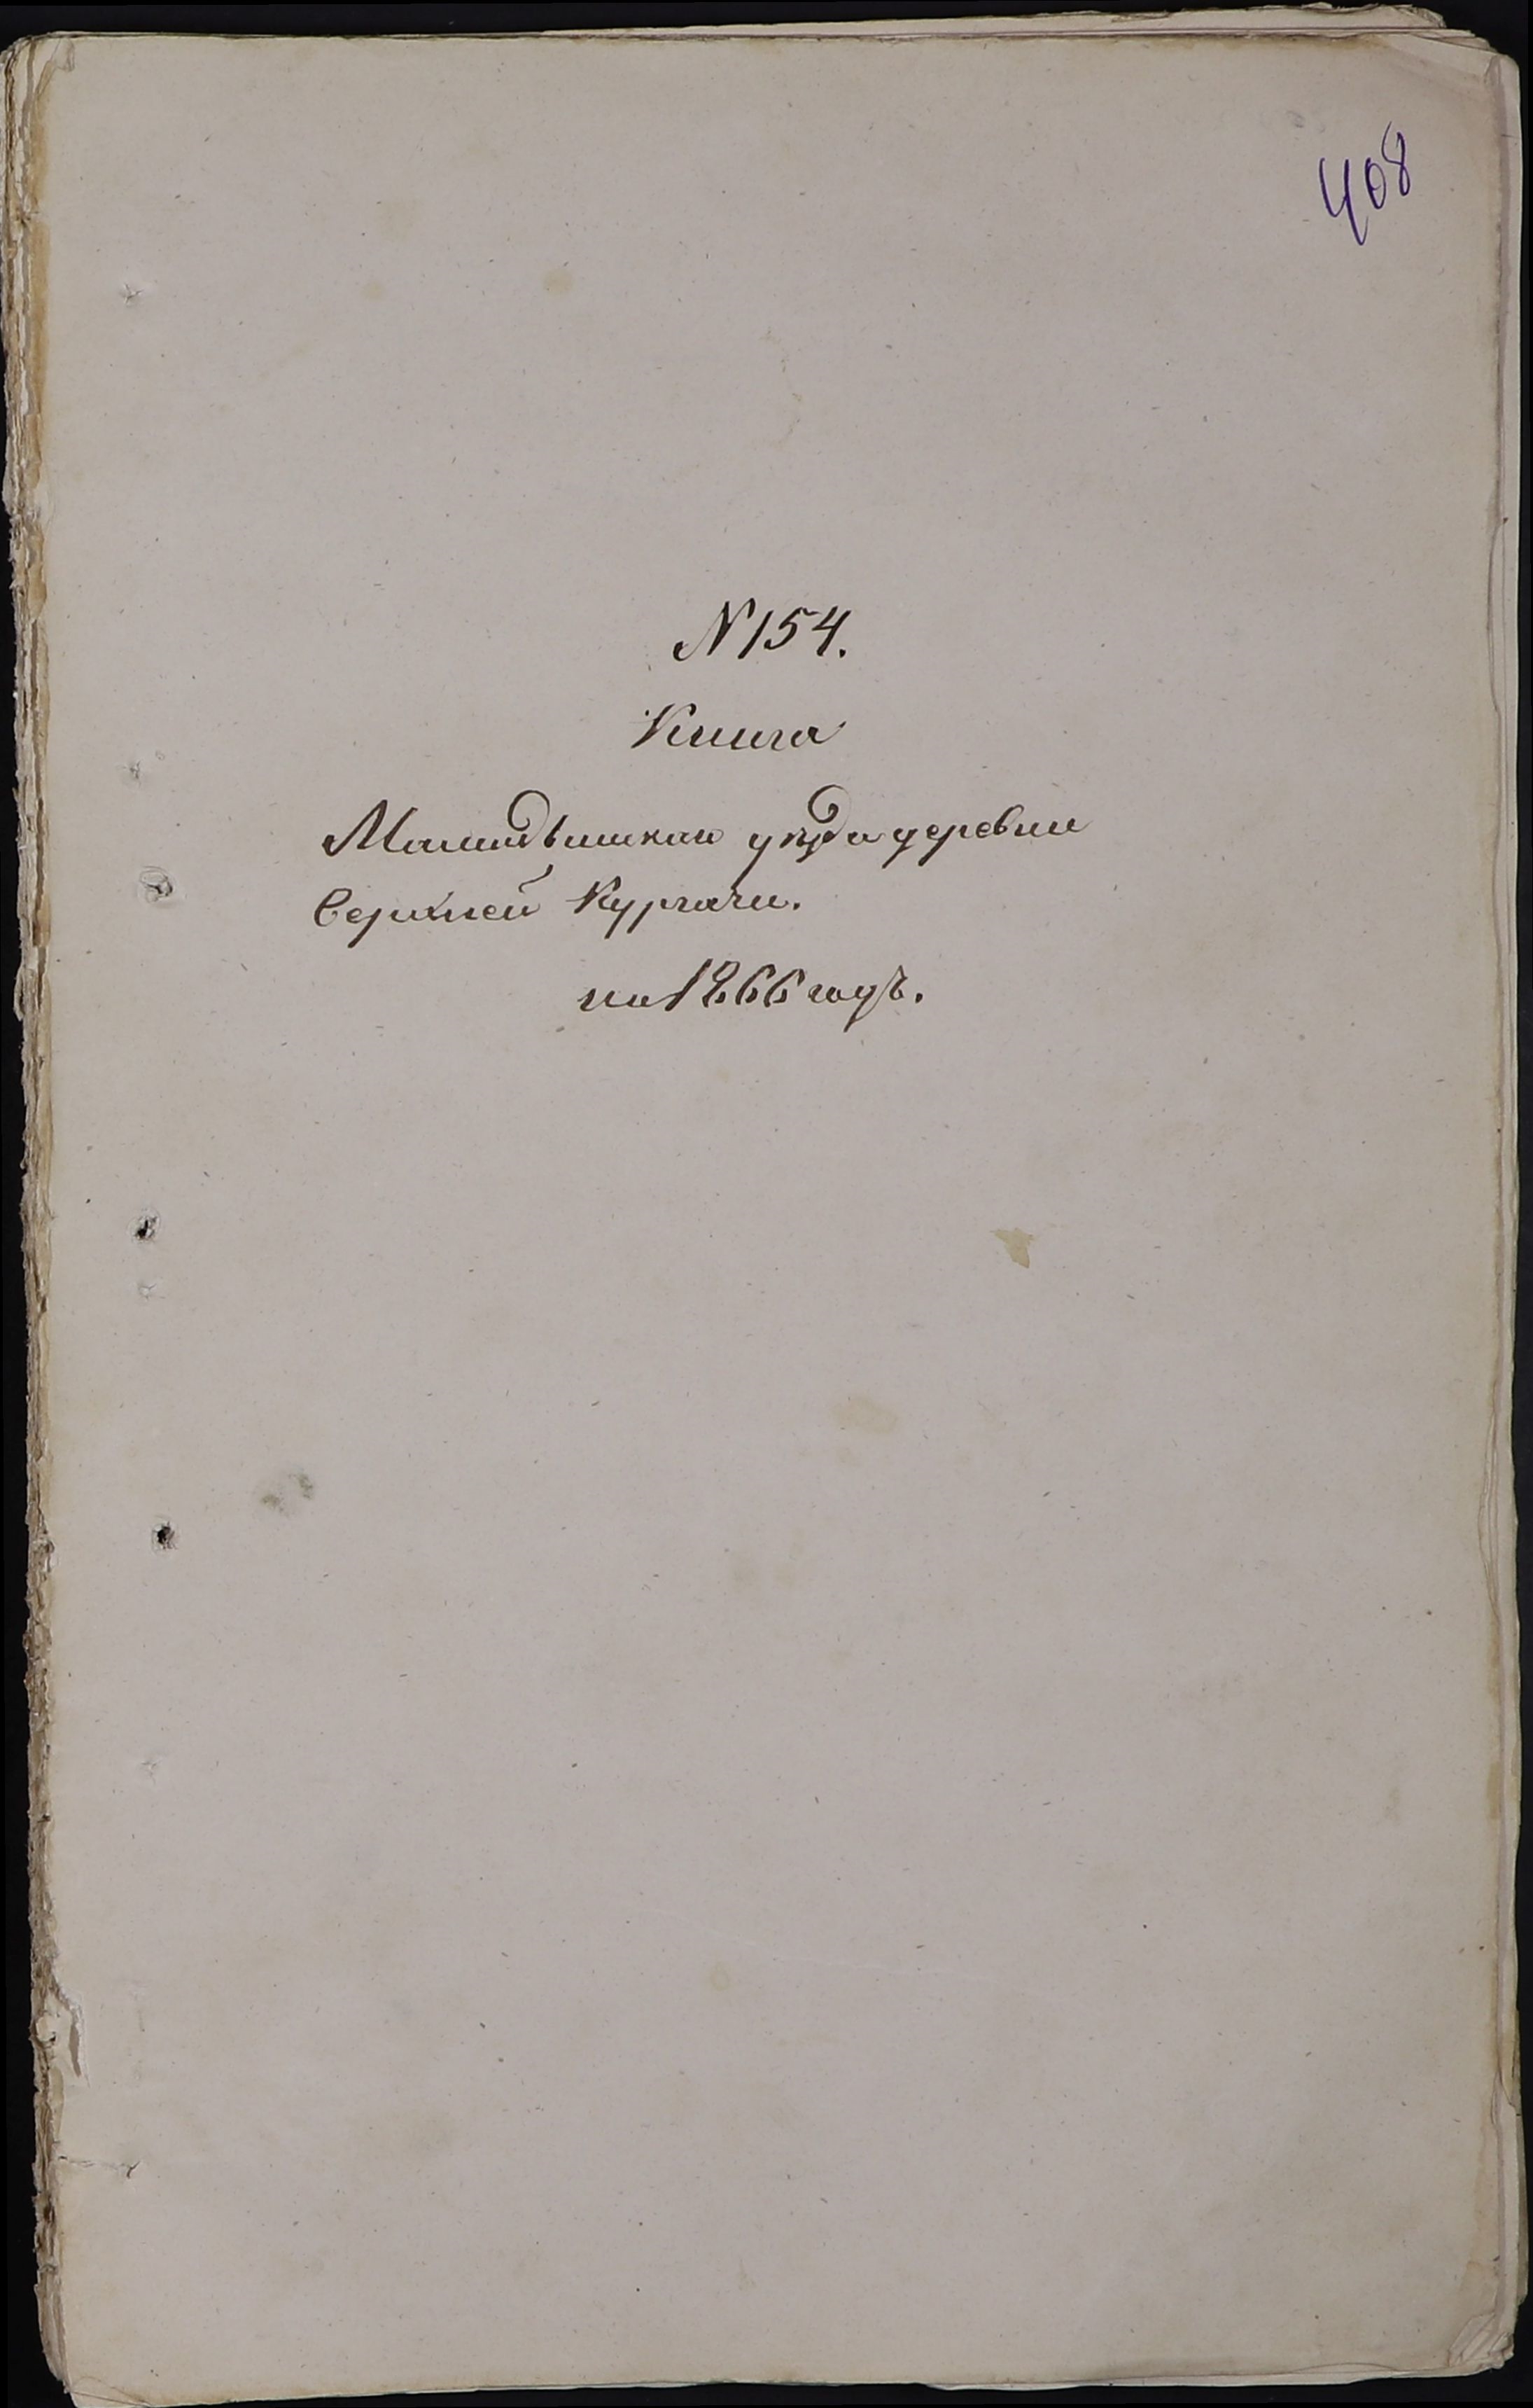 408
№ 154.
Книга
Мамадышскаго уѣзда деревни
Верхней Кургачи.
на 1866 годъ.